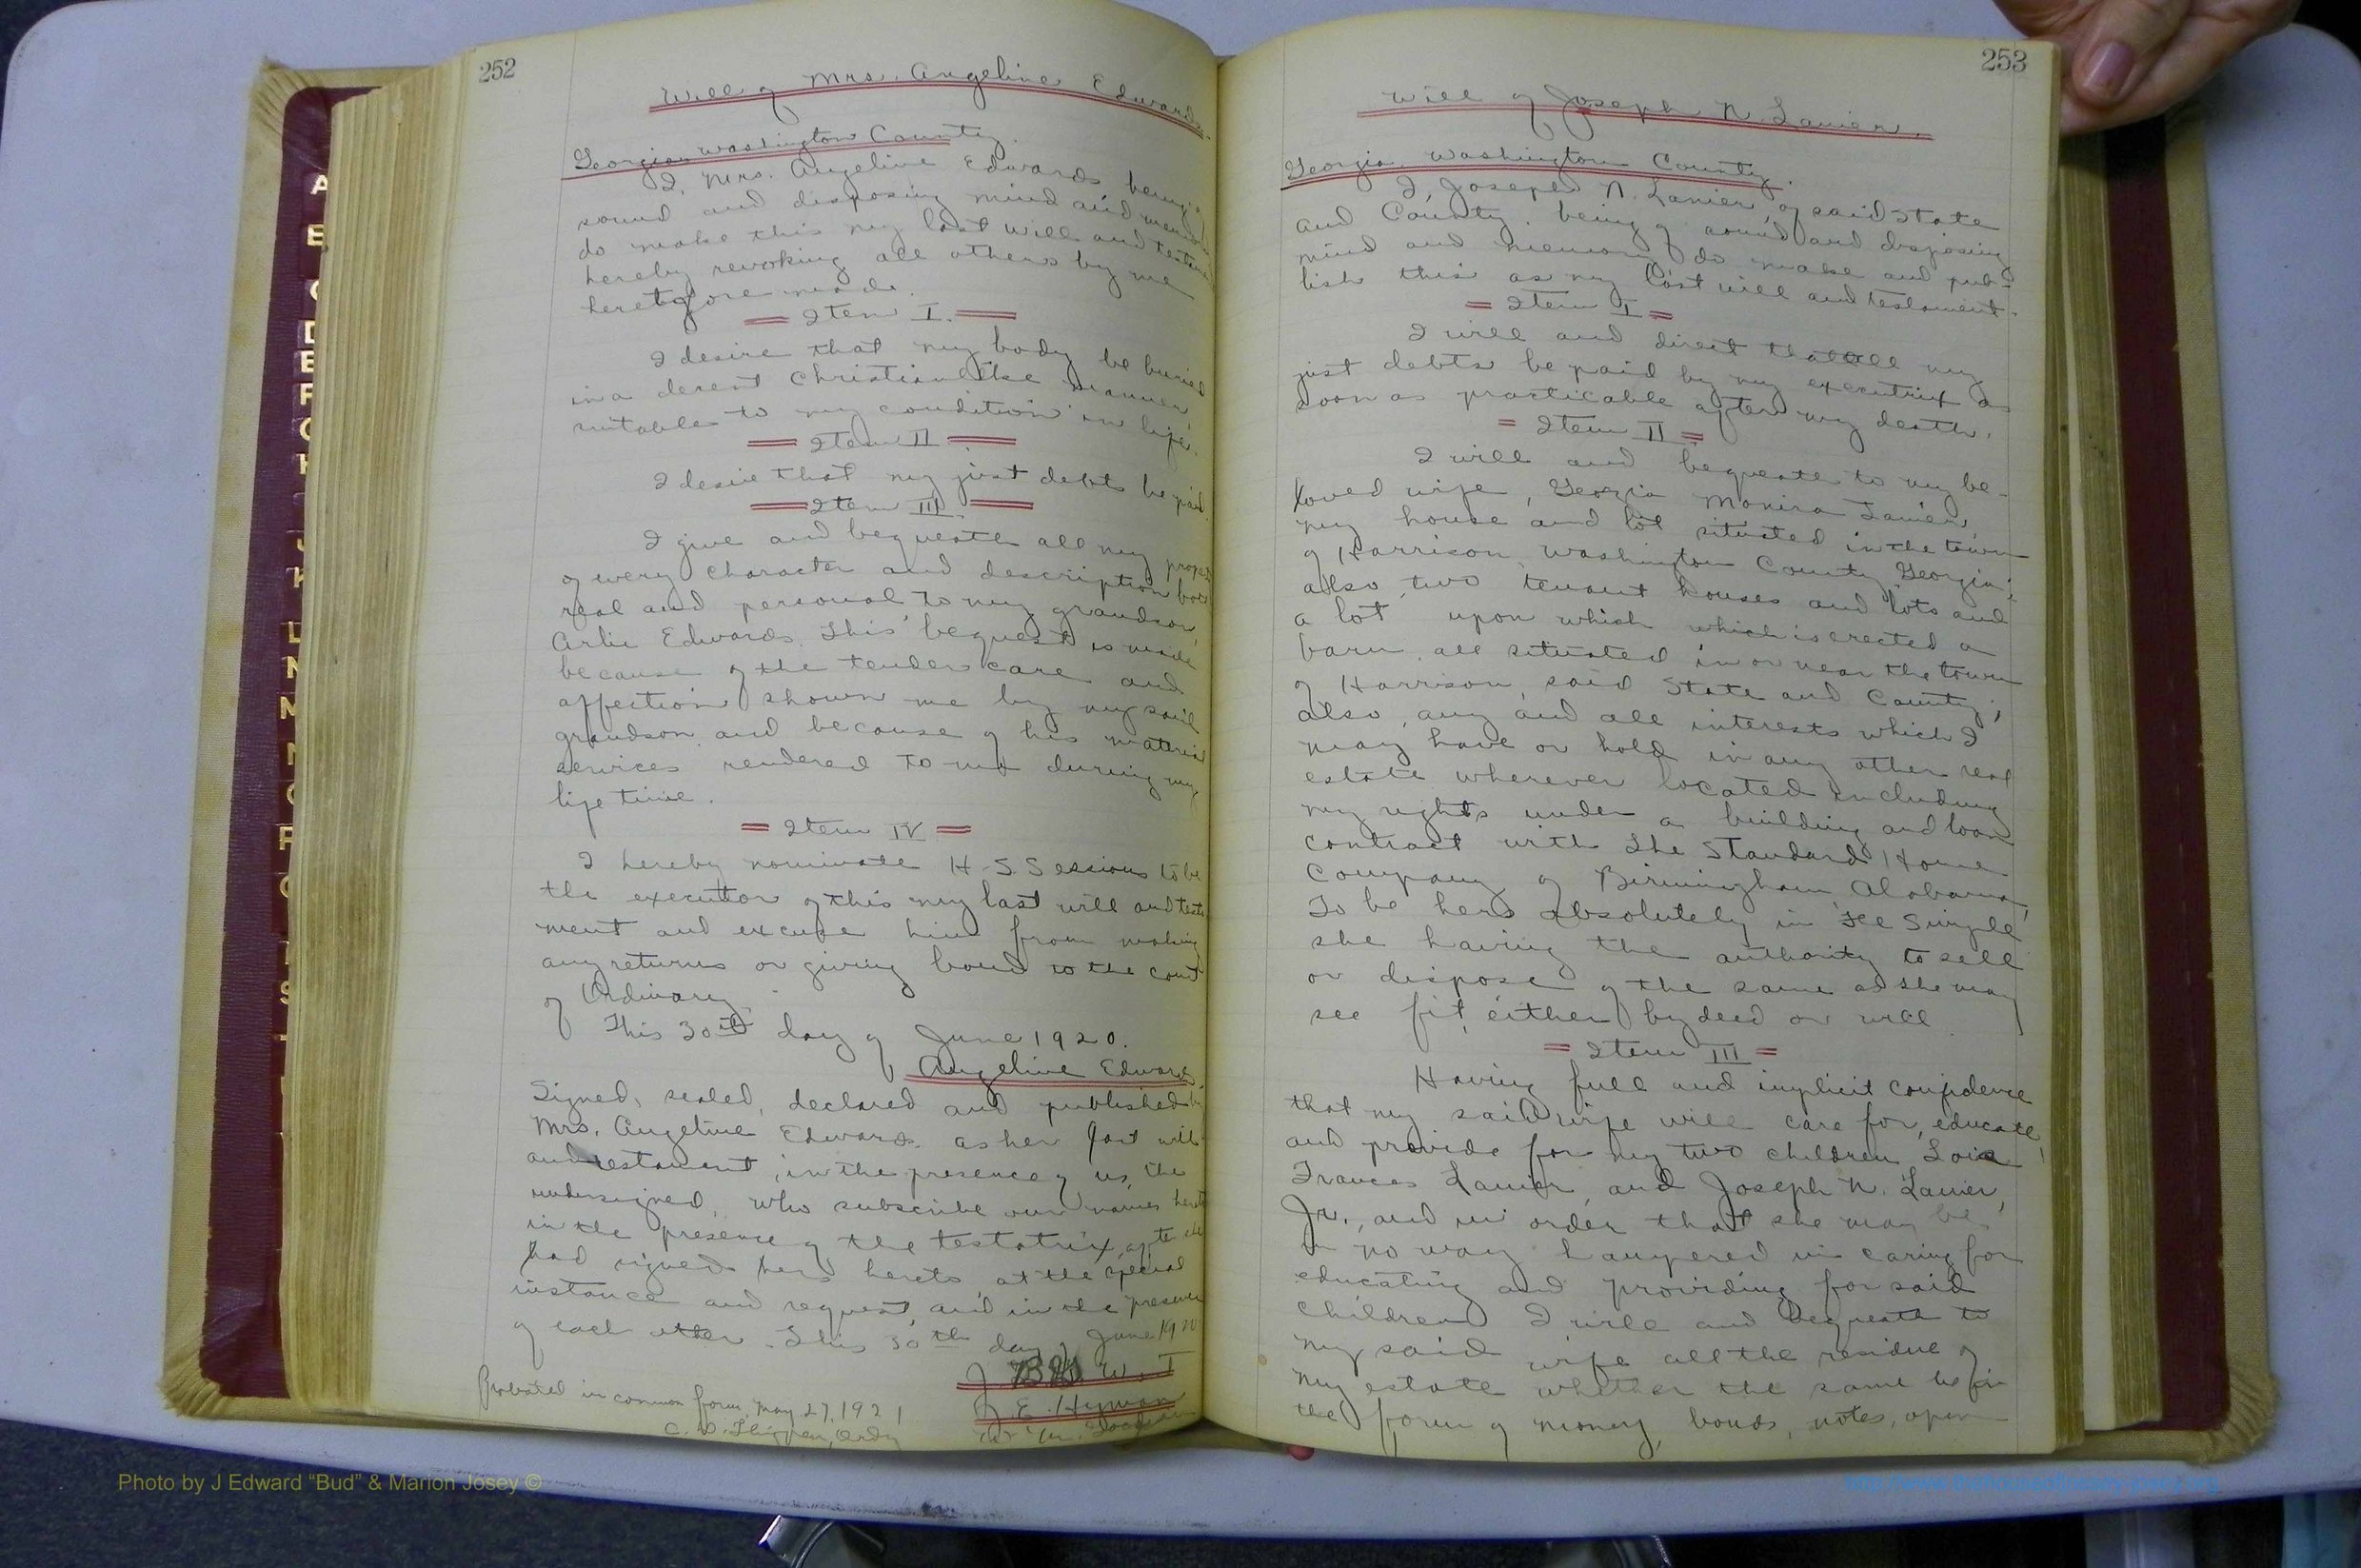 252
Will of Mrs. Angeline Edwards.
Georgia, Washington County.
I, Mrs. Angeline Edwards, being of
sound and disposing mind and memory
do make this my last will and testament
hereby revoking all others by me
heretofore made.
Item I.
I desire that my body be buried
in a decent Christianlike manner,
suitable to my condition in life.
Item II
I desire that my just debts be paid.
Item III.
I give and bequeath all my
of every character and description
real and personal to my grandson,
Arlie Edwards. This bequest is made
because of the tender care and
affection shown me by my said
grandson and because of his material
services rendered to me during my
life time.
Item IV
I hereby nominate H. S. Sessions to be
the executor of this my last will and testa
ment and excuse him from making
any returns or giving bond to the court
of Ordinary.
This 30th day of June 1920.
Angeline Edwards
Signed, sealed, declared and published by
Mrs. Angeline Edwards as her last will
and testament, in the presence of us, the
undersigned, who subscribe our names hereto
in the presence of the testatrix, after she
had signed hers hereto at the special
instance and request, and in the presence
of each other. This 30th day of June 1920
J. W.
J. E. Hyman
W. M.
Probated in common form, May 27, 1921
C. D. Thigpen, Ordy
253
Will of Joseph N. Lanier.
Georgia, Washington County.
I, Joseph N. Lanier, of said State
and County, being of sound and disposing
mind and memory do make and pub-
lish this as my last will and testament.
Item I
I will and direct that all my
just debts be paid by my executrix as
soon as practicable after my death.
Item II
I will and bequeate to my be-
loved wife, Georgia Monira Lanier,
my house and lot situated in the town
of Harrison, Washington County, Georgia;
also, two tenant houses and lots and
a lot upon which which is erected a
barn, all situated in or near the town
of Harrison, said State and County;
also, any and all interests which I
may have or hold in any other real
estate wherever located including
my rights under a building and loan
contract with The Standard Home
Company of Birmingham, Alabama,
To be hers absolutely in Fee Simple
she having the authority to sell
or dispose of the same as she may
see fit, either by deed or will.
Item III
Having full and implicit confidence
that my said wife will care for, educate,
and provide for my two children, Lois
Frances Lanier, and Joseph N. Lanier,
Jr., and in order that she may be
in no way hampered in caring for
educating and providing for said
children I will and bequeate to
my said wife all the residue of
my estate whether the same be in
the form of money, bonds, notes, open
A
B
C
D
E
F
G
H
I
J
K
L
M
N
O
P
Q
R
S
T
Photo by J Edward “Bud” & Marion Josey ©